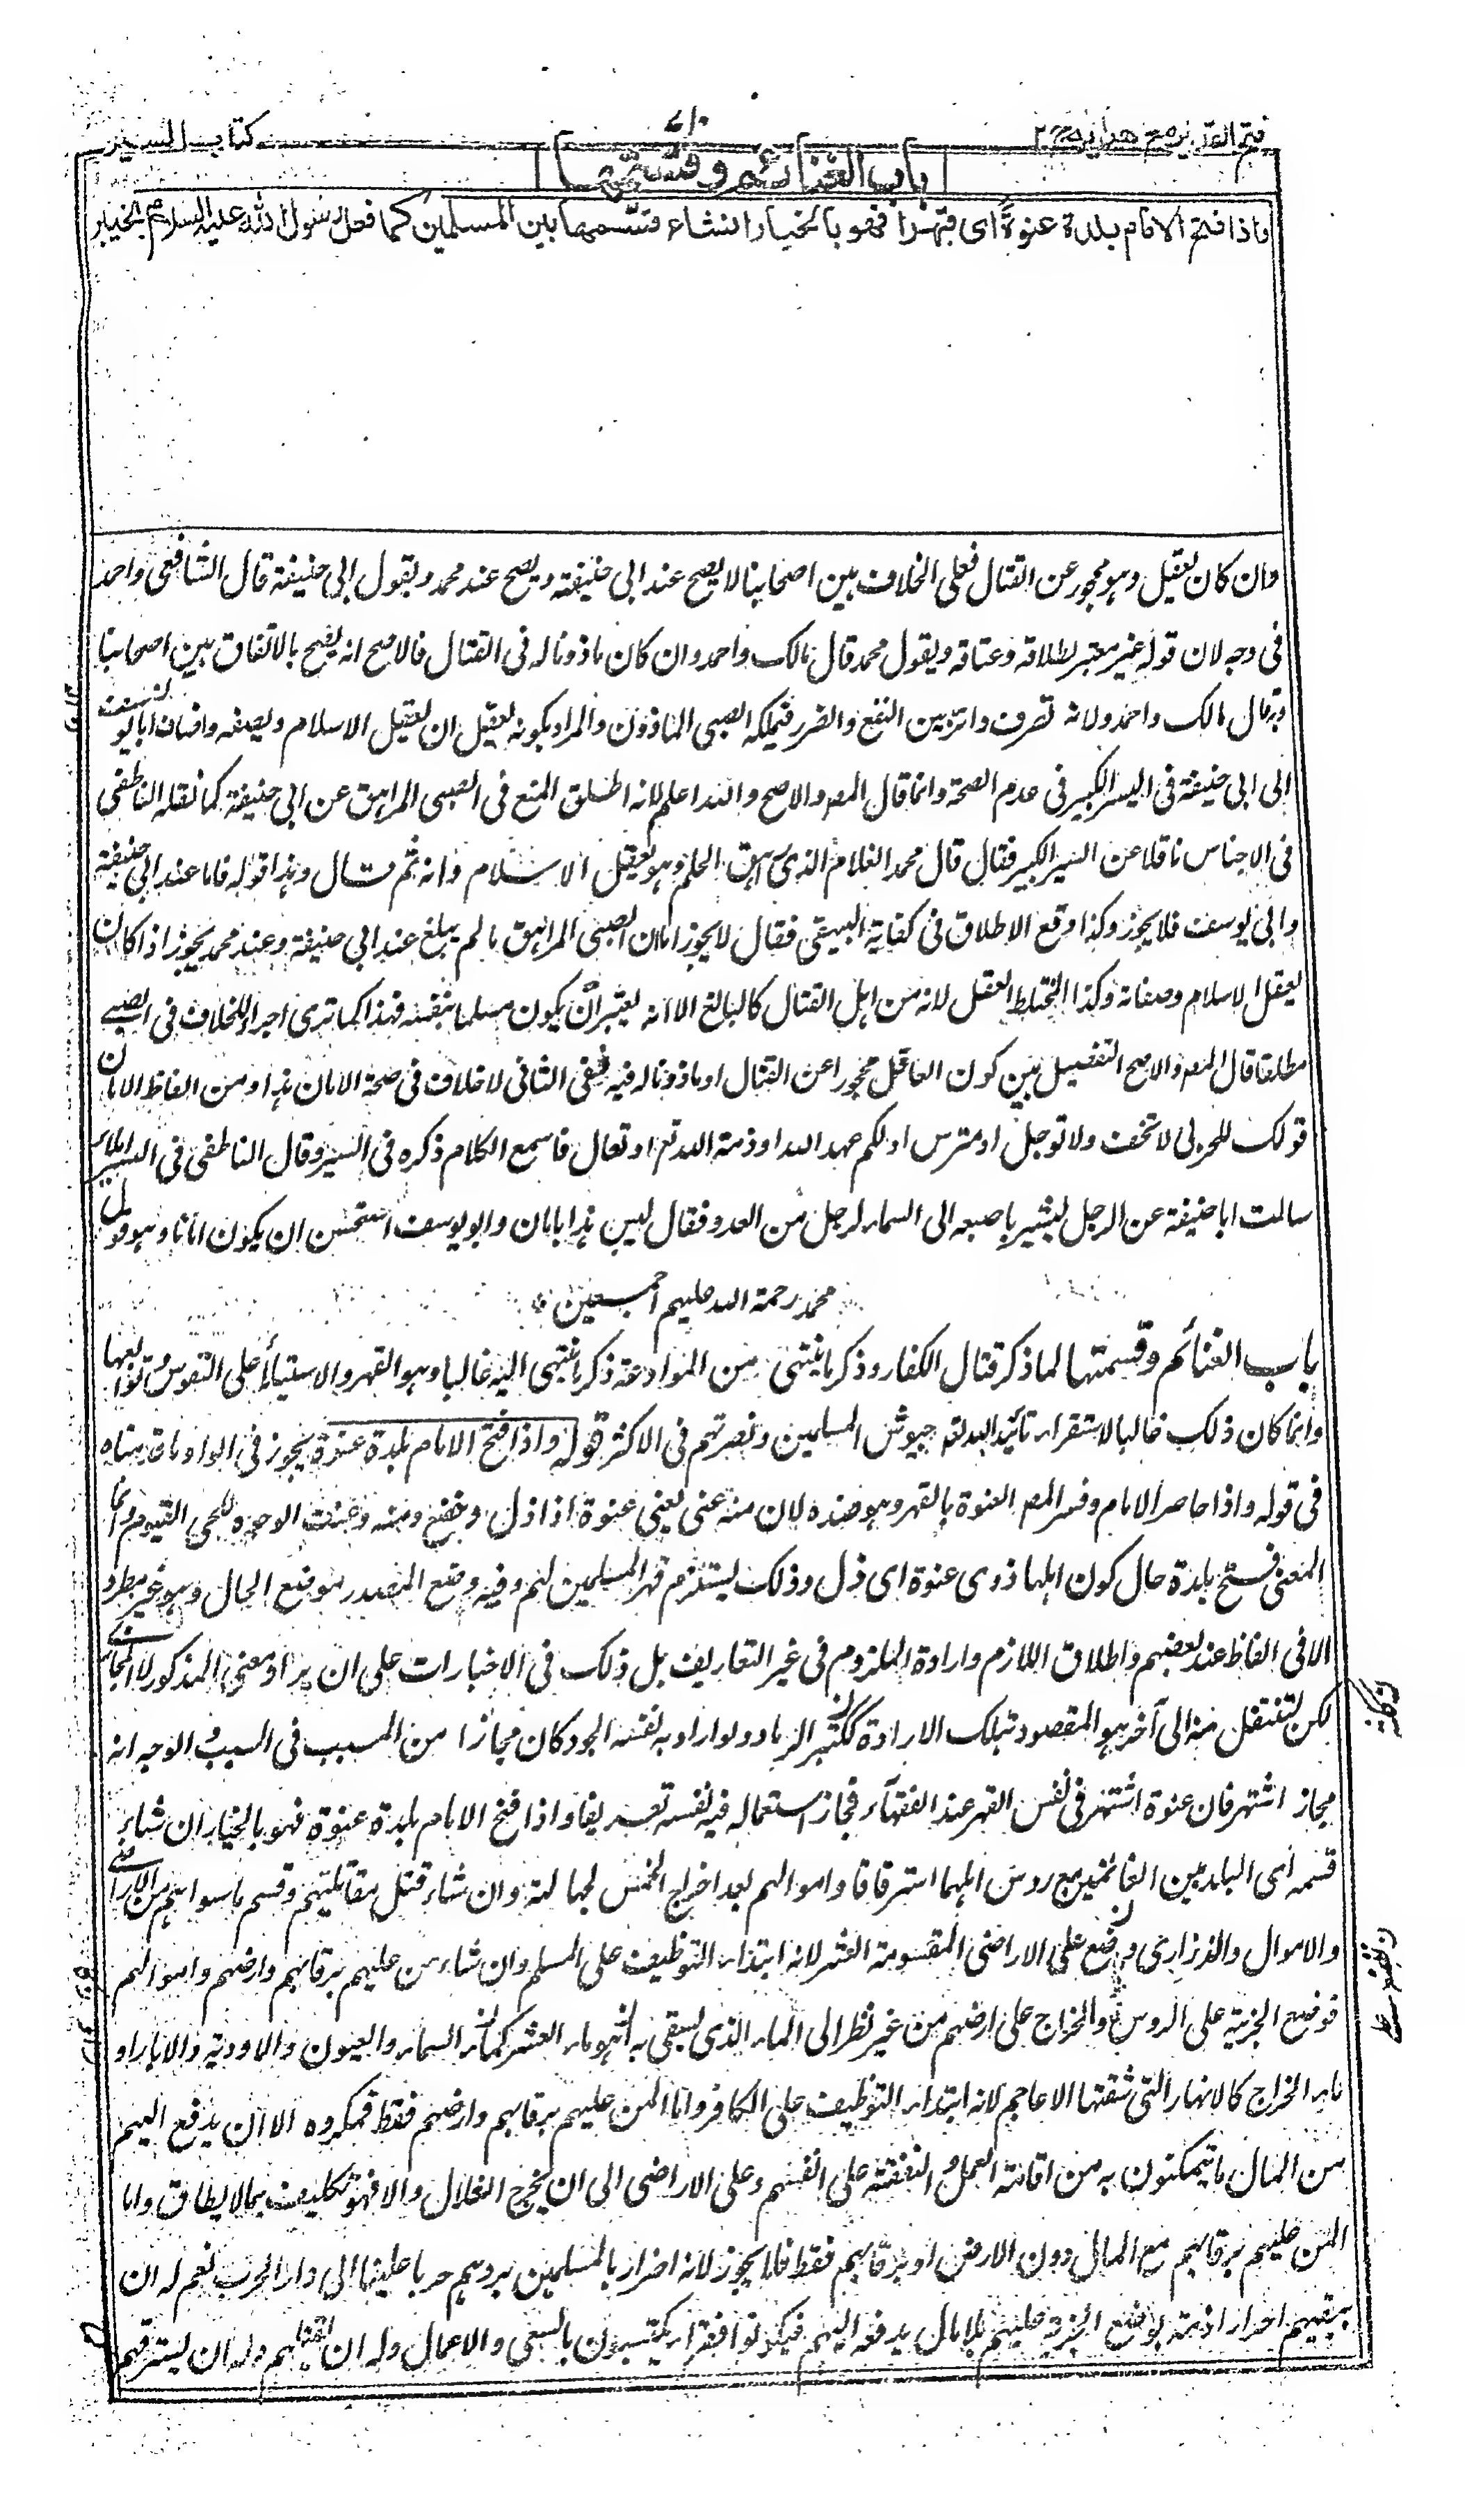 فتح القدير مع هدايه ج٢
٧١٠
كتاب السير
باب الغنائم وقسمتها
واذا فتح الامام بلدة عنوةً اى قهرا فهو بالخيار انشاء قسّمها بين المسلمين كما فعل رسول الله عليه السلام بخيبر
وان كان يعقل وهو محجور عن القتال فعلى الخلاف بين اصحابنا لا يصح عند ابى حنيفة ويصح عند محمد وبقول ابى حنيفة قال الشافعى واحمد
فى وجه لان قوله غير معتبر لطلاقه وعتاقه وبقول محمد قال مالك واحمد وان كان ماذونا له فى القتال فالاصح انه يصح بالاتفاق بين اصحابنا
وبه قال مالك واحمد ولانه تصرف دائر بين النفع والضرر فيملكه الصبى الماذون والمراد بكونه يعقل ان يعقل الاسلام ويصفه واضاف ابا يوسف
الى ابى حنيفة فى السير الكبير فى عدم الصحة وانما قال المص والاصح والله اعلم لانه اطلق المنع فى الصبى المراهق عن ابى حنيفة كما نقله الناطفى
فى الاجناس ناقلا عن السير الكبير فقال قال محمد الغلام الذى راهق الحلم وهو يعقل الاسلام وانه ثم قال وهذا قوله فاما عند ابى حنيفة
وابى يوسف فلا يجوز وكذا وقع الاطلاق فى كفاية البيهقى فقال لا يجوز امان الصبى المراهق مالم يبلغ عند ابى حنيفة وعند محمد يجوز اذا كان
يعقل الاسلام وصفاته وكذا المختلط العقل لانه من اهل القتال كالبالغ الا انه يعتبر ان يكون مسلما بنفسه فهذا كما ترى اجراء للخلاف فى الصبى
مطلقا قال المص والاصح التفصيل بين كون العاقل محجورا عن القتال او ماذونا له فيه ففى الثانى لا خلاف فى صحة الامان هذا ومن الفاظ الامان
قولك للحربى لا تخف ولا توجل او مترس او لكم عهد الله او ذمة الله تع او تعال فاسمع الكلام ذكره فى السير وقال الناطفى فى السير املاء
سالت ابا حنيفة عن الرجل يشير باصبعه الى السماء لرجل من العدو فقال ليس هذا بامان وابو يوسف استحسن ان يكون امانا وهو قول
محمد رحمة الله عليهم اجمعين
باب الغنائم وقسمتها لما ذكر قتال الكفار وذكر ما ينتهى من الموادعة ذكر ما ينتهى اليه غالبا وهو القهر والاستيلاء على النفوس وتوابعها
وانما كان ذلك غالبا لاستقراء تائيد الله تع جيوش المسلمين ونصرتهم فى الاكثر قوله واذا فتح الامام بلدة عنوة يجوز فى الواو ما قدمناه
فى قوله واذا حاصر الامام وفسر المص العنوة بالقهر وهو ضده لان منه عنى يعنى عنوة اذا ذل وخضع ومنه وعنت الوجوه للحى القيوم وانما
المعنى فتح بلدة حال كون اهلها ذوى عنوة اى ذل وذلك يستلزم قهر المسلمين لهم وفيه وضع المصدر موضع الحال وهو غير مطرد
الا فى الفاظ عند بعضهم واطلاق اللازم وارادة الملزوم فى غير التعاريف بل ذلك فى الاخبارات على ان يراد معنى المذكور لا المجازى
لكن لتنتقل منه الى آخر هو المقصود بتلك الارادة ككثير الرماد ولو اراد به نفسه الجود كان مجازا من المسبب فى السبب والوجه انه
مجاز اشتهر فان عنوة اشتهر فى نفس القهر عند الفقهاء فجاز استعماله فيه نفسه تعريفا واذا فتح الامام بلدة عنوة فهو بالخيار ان شاء
قسمه اى البلد بين الغانمين مع روس اهلها استرقاقا واموالهم بعد اخراج الخمس لجهاته وان شاء قتل مقاتلتهم وقسم ما سواهم من الاراضى
والاموال والذرارى ويضع على الاراضى المقسومة العشر لانه ابتداء التوظيف على المسلم وان شاء من عليهم برقابهم وارضهم واموالهم
فوضع الجزية على الروس والخراج على ارضهم من غير نظر الى الماء الذى يسقى به اهو ماء العشر كماء السماء والعيون والاودية والابار او
ماء الخراج كالانهار التى شقتها الاعاجم لانه ابتداء التوظيف على الكافر واما المن عليهم برقابهم وارضهم فقط فمكروه الا ان يدفع اليهم
من المال ما يتمكنون به من اقامة العمل والنفقة على انفسهم وعلى الاراضى الى ان يخرج الغلال والا فهو تكليف بما لا يطاق واما
المن عليهم برقابهم مع المال دون الارض او برقابهم فقط فلا يجوز لانه اضرار بالمسلمين بردهم حربا علينا الى دار الحرب نعم له ان
يبقيهم احرارا ذمة بوضع الجزية عليهم بلا مال يدفعه اليهم فيكونوا فقراء يكتسبون بالسعى والاعمال وله ان يقتلهم وله ان يسترقهم